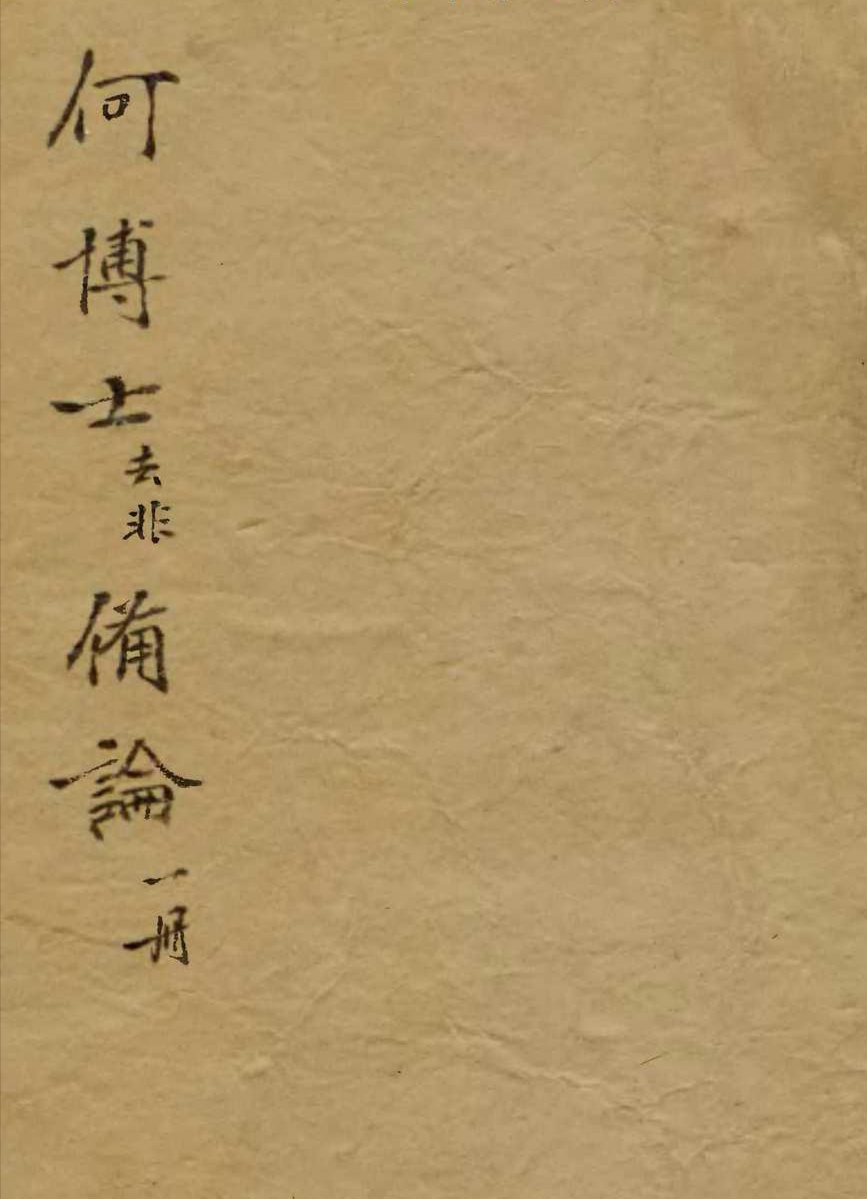 何博士去非備論一册